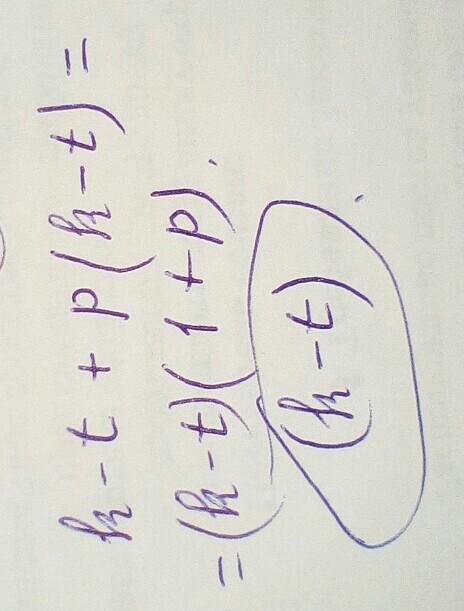 k-t + p(k-t) =
=(k-t)(1+p).
(k-t)